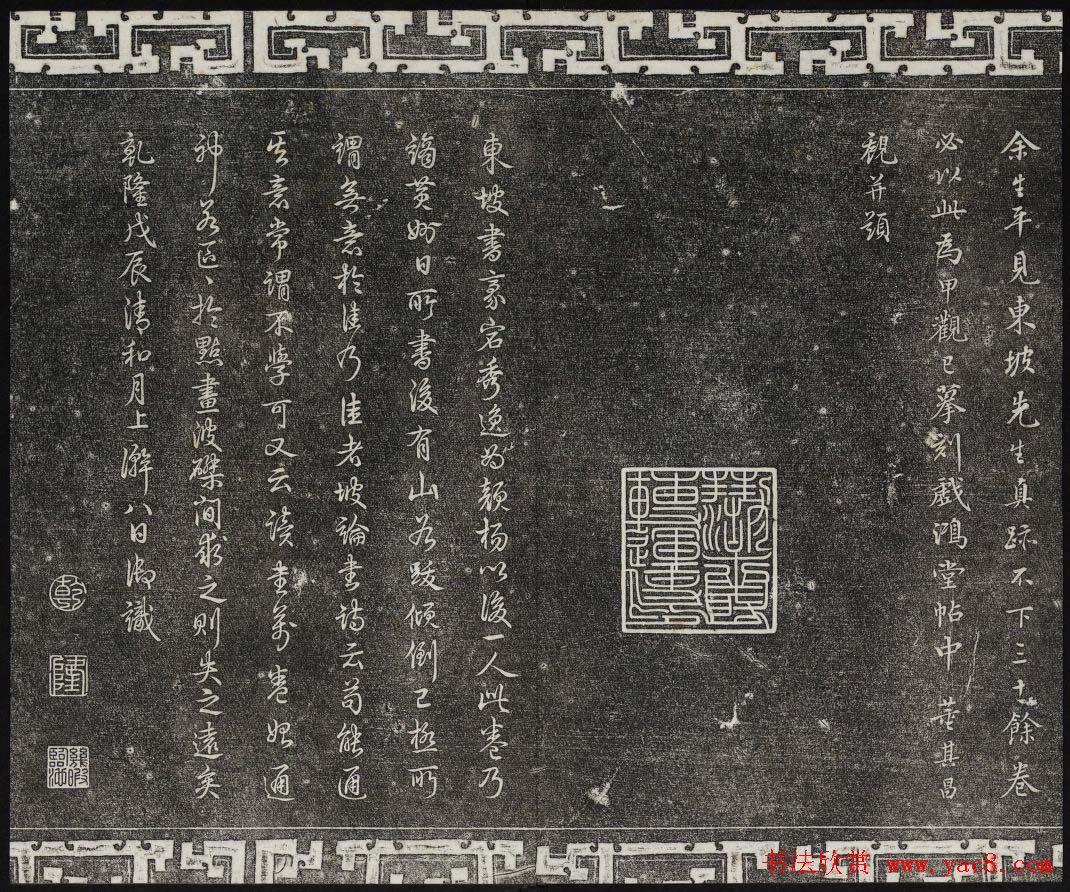 余生平見東坡先生真跡不下三十餘卷
必以此為甲觀已摹刻戲鴻堂帖中 董其昌
觀并題
東坡書豪宕秀逸為顏楊以後一人此卷乃
謫黃州日所書後有山谷跋傾倒已極所
謂無意於佳乃佳者坡論書詩云苟能通
其意常謂不學可又云讀書萬卷始通
神若區〻於點畫波磔間求之則失之遠矣
乾隆戊辰清和月上澣八日御識
乾
隆
幾暇臨池
书法欣赏 www.yac8.com